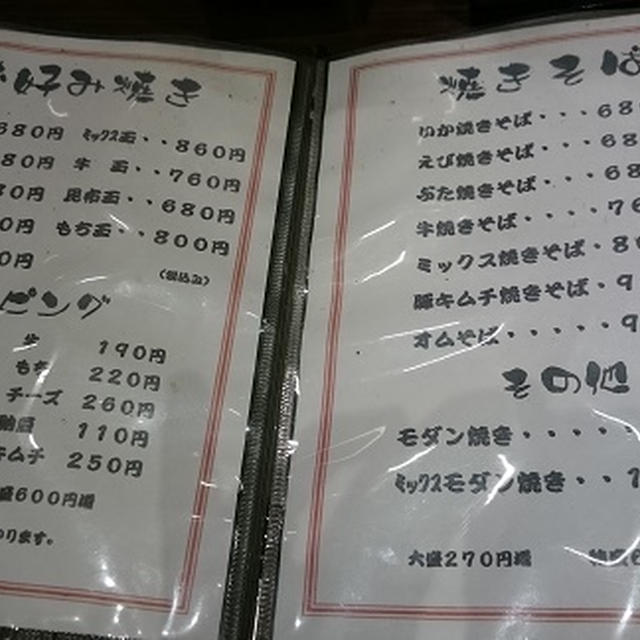 好み焼き
680円 ミックス玉・・860円
80円 牛 玉・・760円
80円 昆布玉・・680円
0円 もち玉・・800円
0円 (税込み)
ピング
牛 190円
もち 220円
チーズ 260円
110円
キムチ 250円
盛600円増
ります。
焼きそば
いか焼きそば・・・68
えび焼きそば・・・68
ぶた焼きそば・・・68
牛焼きそば・・・・76
ミックス焼きそば・8
豚キムチ焼きそば・9
オムそば・・・・・9
その他
モダン焼き・・・・
ミックスモダン焼き・・1
大盛270円増